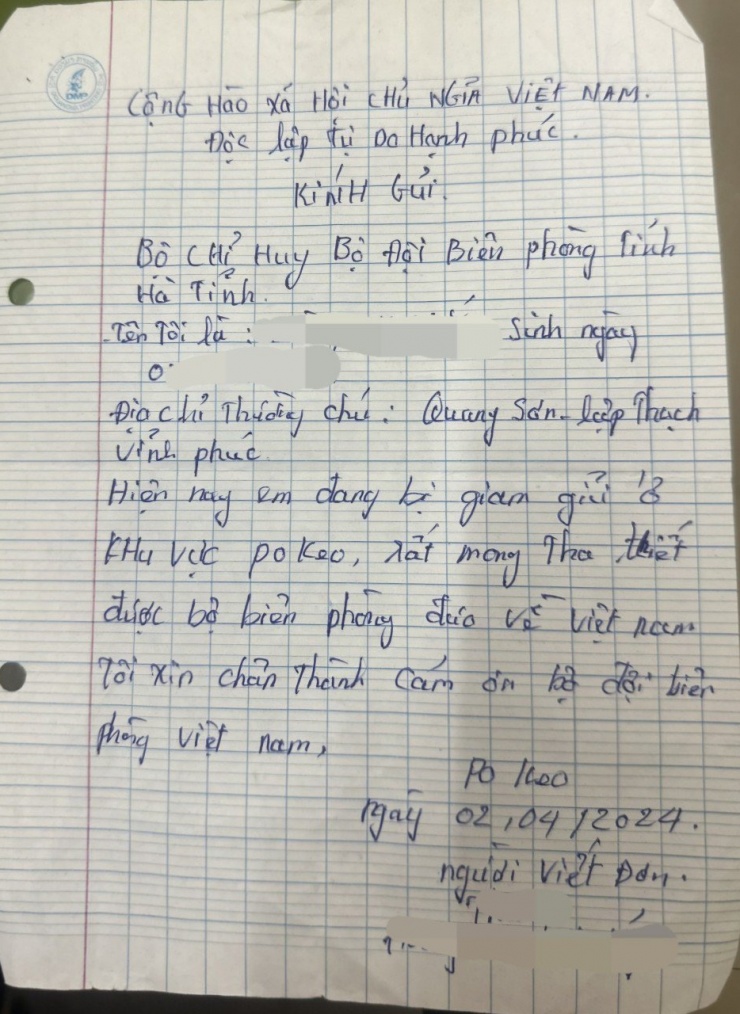 CỘNG HÀO XÃ HỘI CHỦ NGĨA VIỆT NAM.
Độc lập Tự Do Hạnh phúc.
KÍNH Gửi.
Bộ CHỈ Huy Bộ Đội Biên phòng Tỉnh
Hà Tĩnh.
-Tên Tôi là : Sinh ngày
0
Địa chỉ Thường chú : Quang Sơn - lập Thạch
Vĩnh phúc
Hiện nay em đang bị giam giữ ở
KHu Vực po Keo, rất mong Tha thiết
được bộ biên phòng đưa về Việt nam
Tôi xin chân Thành Cảm ơn bộ đội biên
phòng việt nam,
Po Keo
ngày 02, 04 / 2024.
người Viết Đơn.